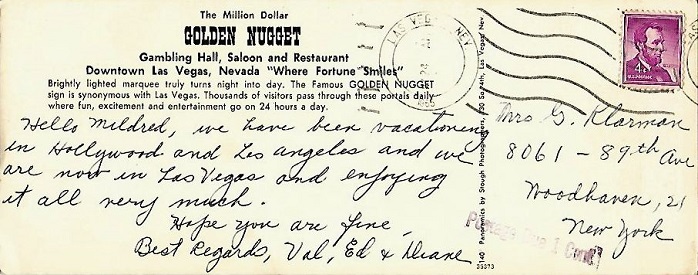 The Million Dollar
GOLDEN NUGGET
Gambling Hall, Saloon and Restaurant
Downtown Las Vegas, Nevada "Where Fortune Smiles"
Brightly lighted marquee truly turns night into day. The Famous GOLDEN NUGGET
sign is synonymous with Las Vegas. Thousands of visitors pass through these portals daily
where fun, excitement and entertainment go on 24 hours a day.
Hello Mildred, we have been vacationing
in Hollywood and Los Angeles and we
are now in Las Vegas and enjoying
it all very much.
Hope you are fine,
Best Regards, Val, Ed & Diane
LAS VEGAS NEV
140 Panoramics by Stough Photographers, Las Vegas, Nev.
35373
4¢
Mrs G. Klarman
8061 - 89th Ave
Woodhaven, 21
New York
Postage Due 1 Cent